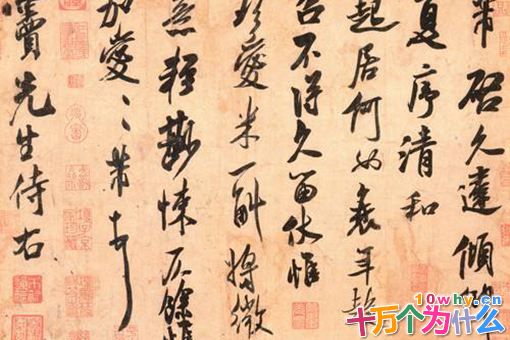 芾啓久違傾仰
夏序清和
起居何如衰年趨
召不得久留伏惟
珍愛米一斛將微
意輕尠悚仄餘惟
加愛〻芾頓首
竇先生侍右
10why.cn
十万个为什么